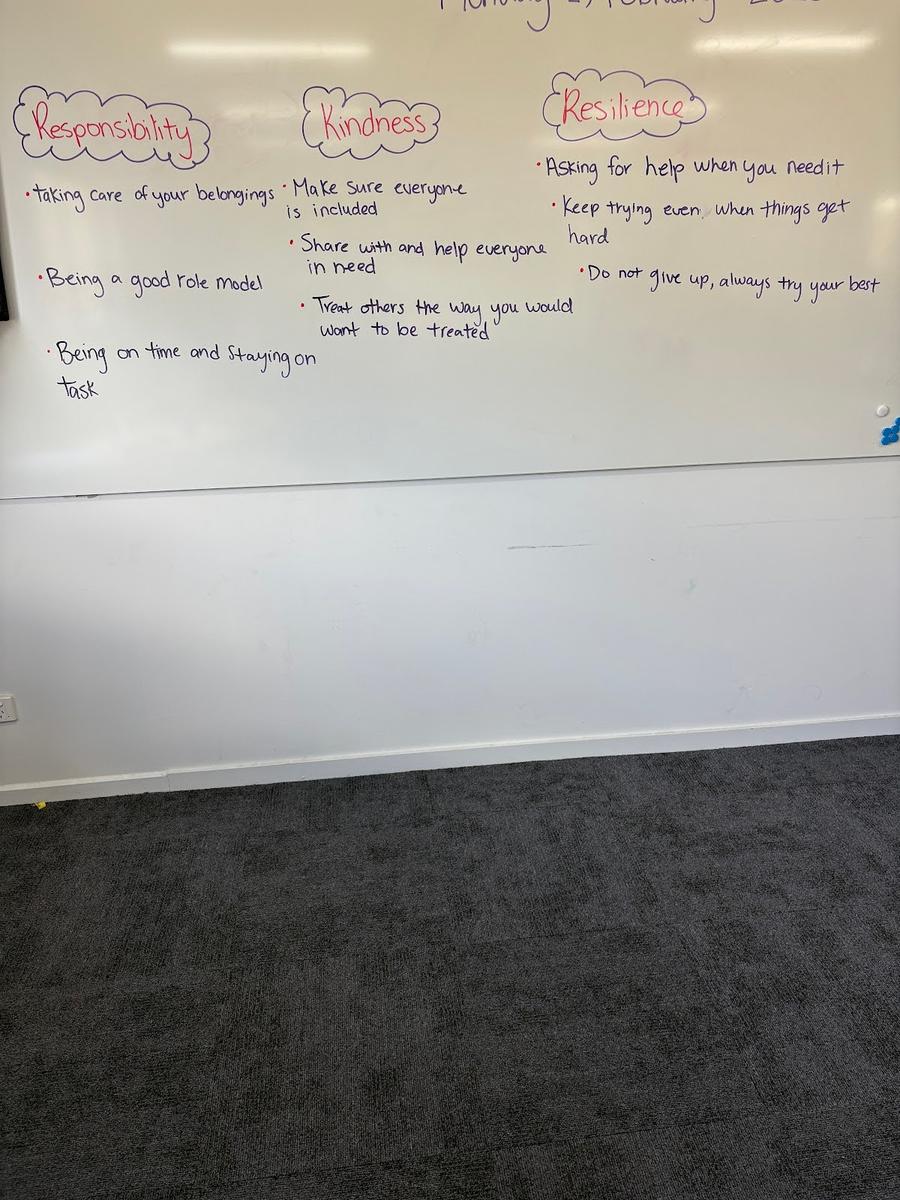 February
Responsibility
• taking care of your belongings
• Being a good role model
• Being on time and Staying on
task
Kindness
• Make sure everyone
is included
• Share with and help everyone
in need
• Treat others the way you would
want to be treated
Resilience
• Asking for help when you need it
• Keep trying even when things get
hard
• Do not give up, always try your best